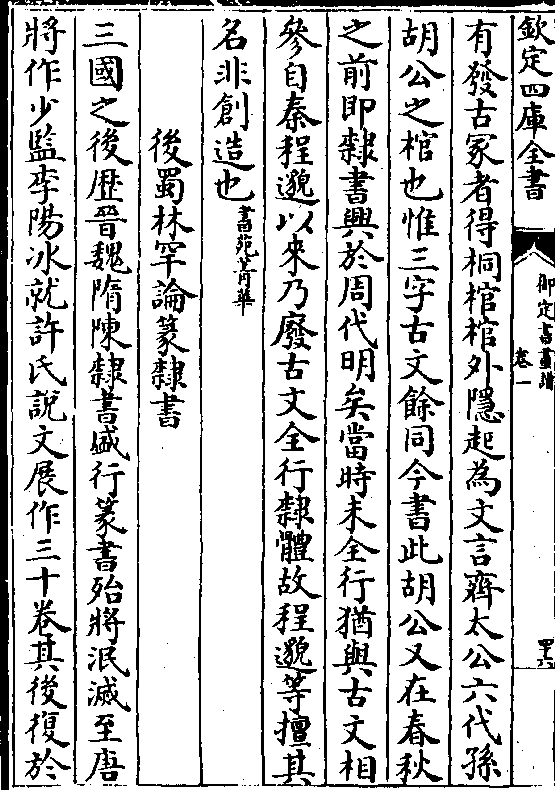 欽定四庫全書
御定書畫譜
卷一
四十六
有發古冢者得桐棺棺外隱起為文言齊太公六代孫
胡公之棺也惟三字古文餘同今書此胡公又在春秋
之前即隸書興於周代明矣當時未全行猶與古文相
參自秦程邈以來乃廢古文全行隸體故程邈等擅其
名非創造也書苑菁華
後蜀林罕論篆隸書
三國之後歴晉魏隋陳隸書盛行篆書殆將泯滅至唐
將作少監李陽冰就許氏說文展作三十卷其後復於